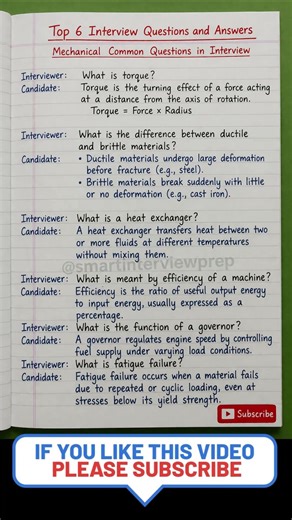 Top 6 Interview Questions and Answers
Mechanical Common Questions in Interview
Interviewer: What is torque?
Candidate: Torque is the turning effect of a force acting
at a distance from the axis of rotation.
Torque = Force × Radius
Interviewer: What is the difference between ductile
and brittle materials?
Candidate: • Ductile materials undergo large deformation
before fracture (e.g., steel).
• Brittle materials break suddenly with little
or no deformation (e.g., cast iron).
Interviewer: What is a heat exchanger?
Candidate: A heat exchanger transfers heat between two
or more fluids at different temperatures
without mixing them.
@smartinterviewprep
Interviewer: What is meant by efficiency of a machine?
Candidate: Efficiency is the ratio of useful output energy
to input energy, usually expressed as a
percentage.
Interviewer: What is the function of a governor?
Candidate: A governor regulates engine speed by controlling
fuel supply under varying load conditions.
Interviewer: What is fatigue failure?
Candidate: Fatigue failure occurs when a material fails
due to repeated or cyclic loading, even at
stresses below its yield strength.
Subscribe
IF YOU LIKE THIS VIDEO
PLEASE SUBSCRIBE